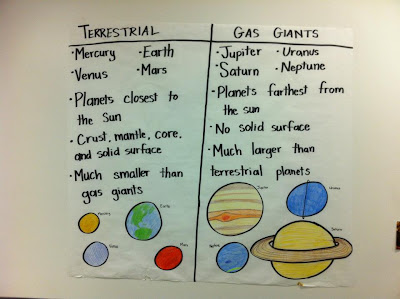 TERRESTRIAL
• Mercury • Earth
• Venus • Mars
• Planets closest to
the Sun
• Crust, mantle, core,
and solid surface
• Much smaller than
gas giants
Mercury
Earth
Mars
GAS GIANTS
• Jupiter • Uranus
• Saturn • Neptune
• Planets farthest from
the sun
• No solid surface
• Much larger than
terrestrial planets
Jupiter
Uranus
Saturn
Neptune